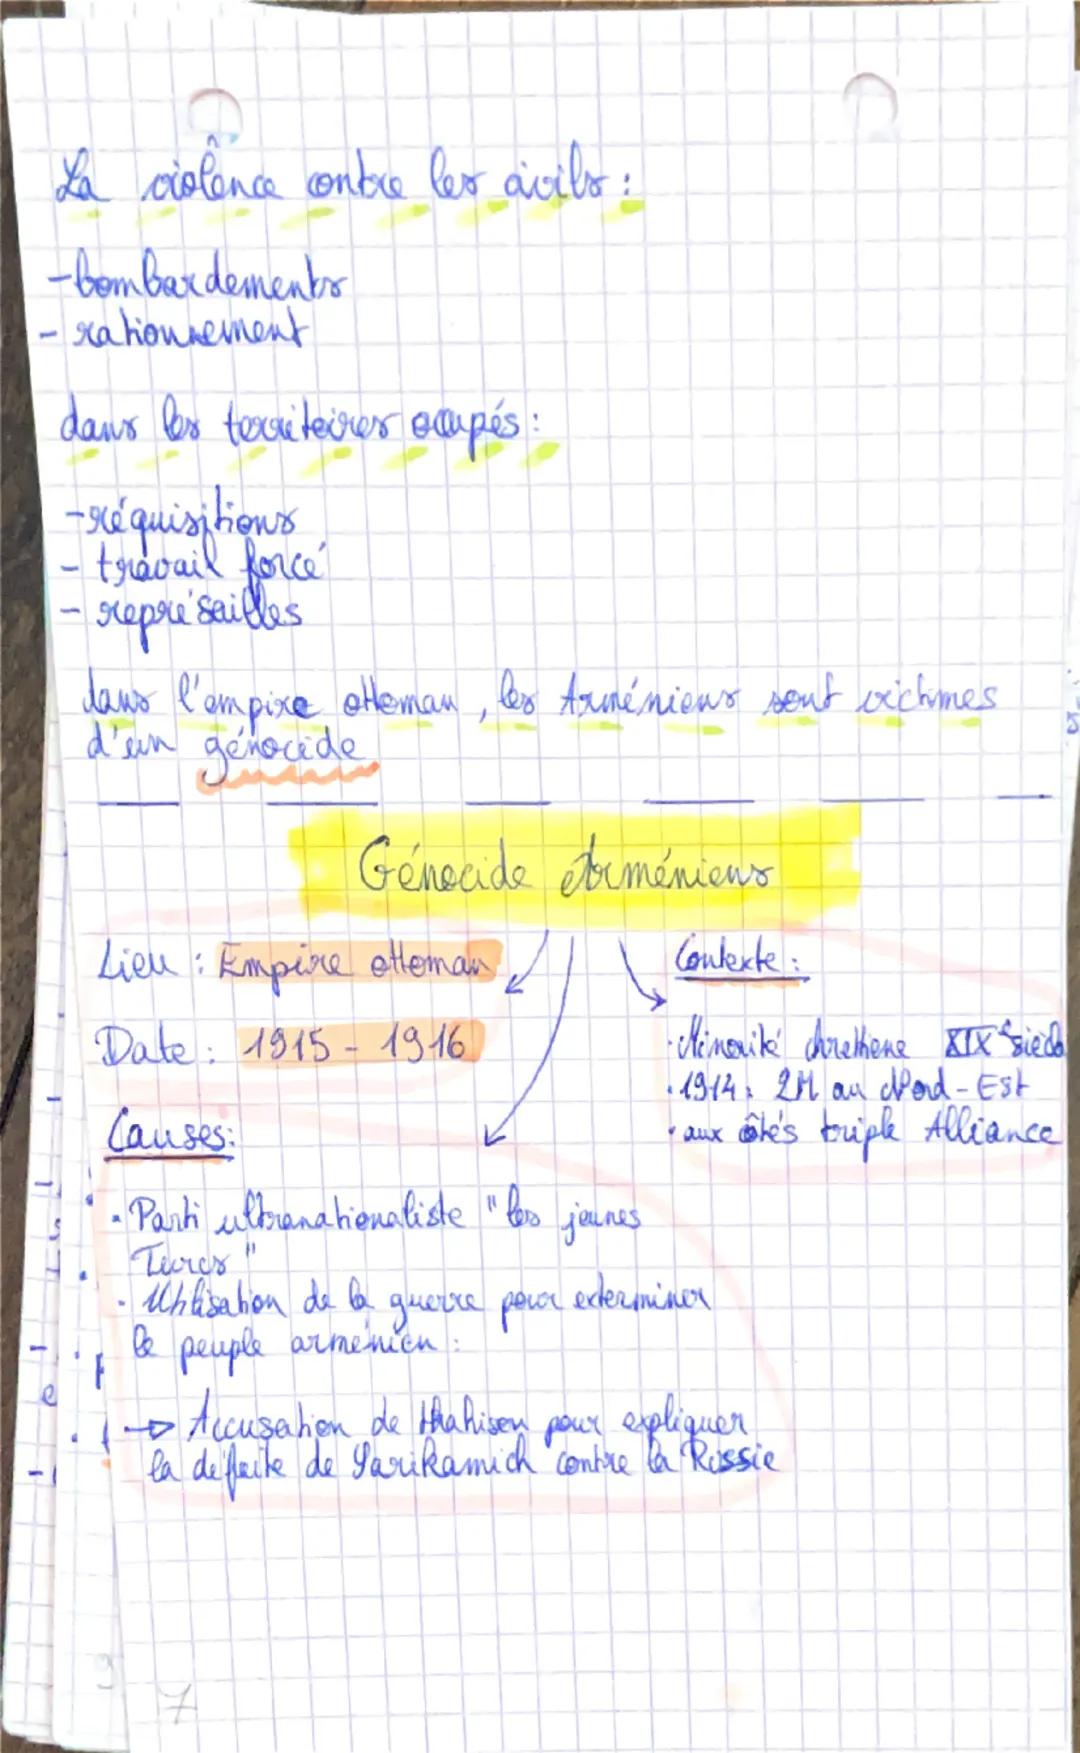 La violence contre les civils :
-bombardements
- rationnement
dans les territoires occupés :
-réquisitions
- travail forcé
- représailles
dans l'empire ottoman, les Arméniens sont victimes
d'un génocide
Génocide Arméniens
Lieu : Empire ottoman
Date : 1915 - 1916
Contexte :
· Minorité chrettiene XIXe siècle
· 1914 : 2M au Nord-Est
· aux côtés triple Alliance
Causes :
· Parti ultranationaliste "les jeunes
Turcs"
· Utilisation de la guerre pour exterminer
le peuple arménien :
→ Accusation de thahison pour expliquer
la défaite de Sarikamich contre la Russie
7